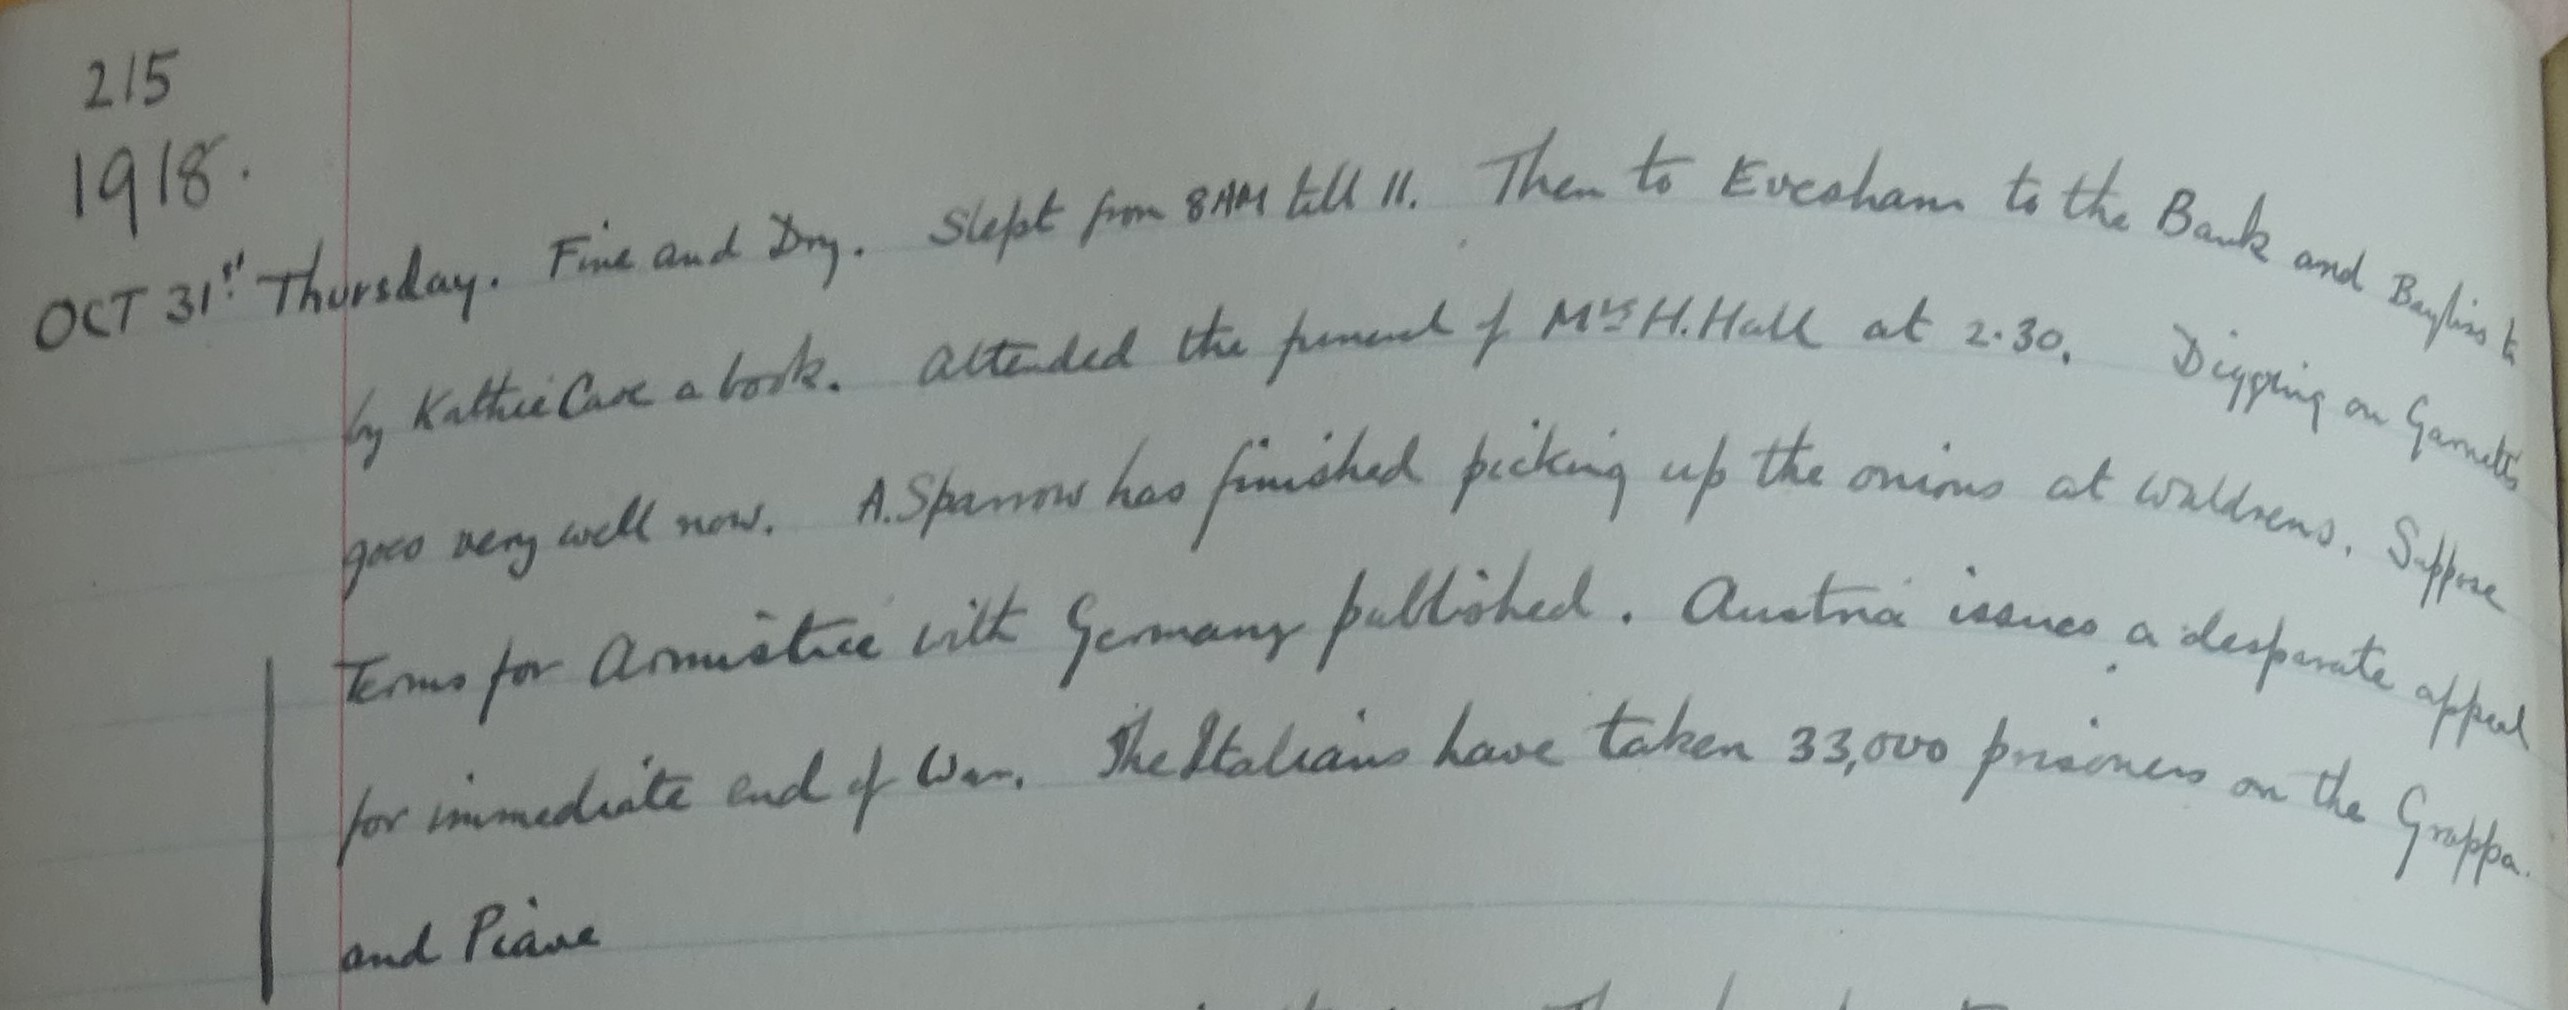 215
1918.
OCT 31st Thursday. Fine and Dry. Slept from 8AM till 11. Then to Evesham to the Bank and Bayliss to
by Kathie Cave a book. Attended the funeral of Mrs H. Hall at 2.30. Digging on Garnetts
goes very well now. A. Sparrow has finished picking up the onions at Waldrens. Suppose
Terms for Armistice with Germany published. Austria issues a desperate appeal
for immediate end of War. The Italians have taken 33,000 prisoners on the Grappa.
and Piave